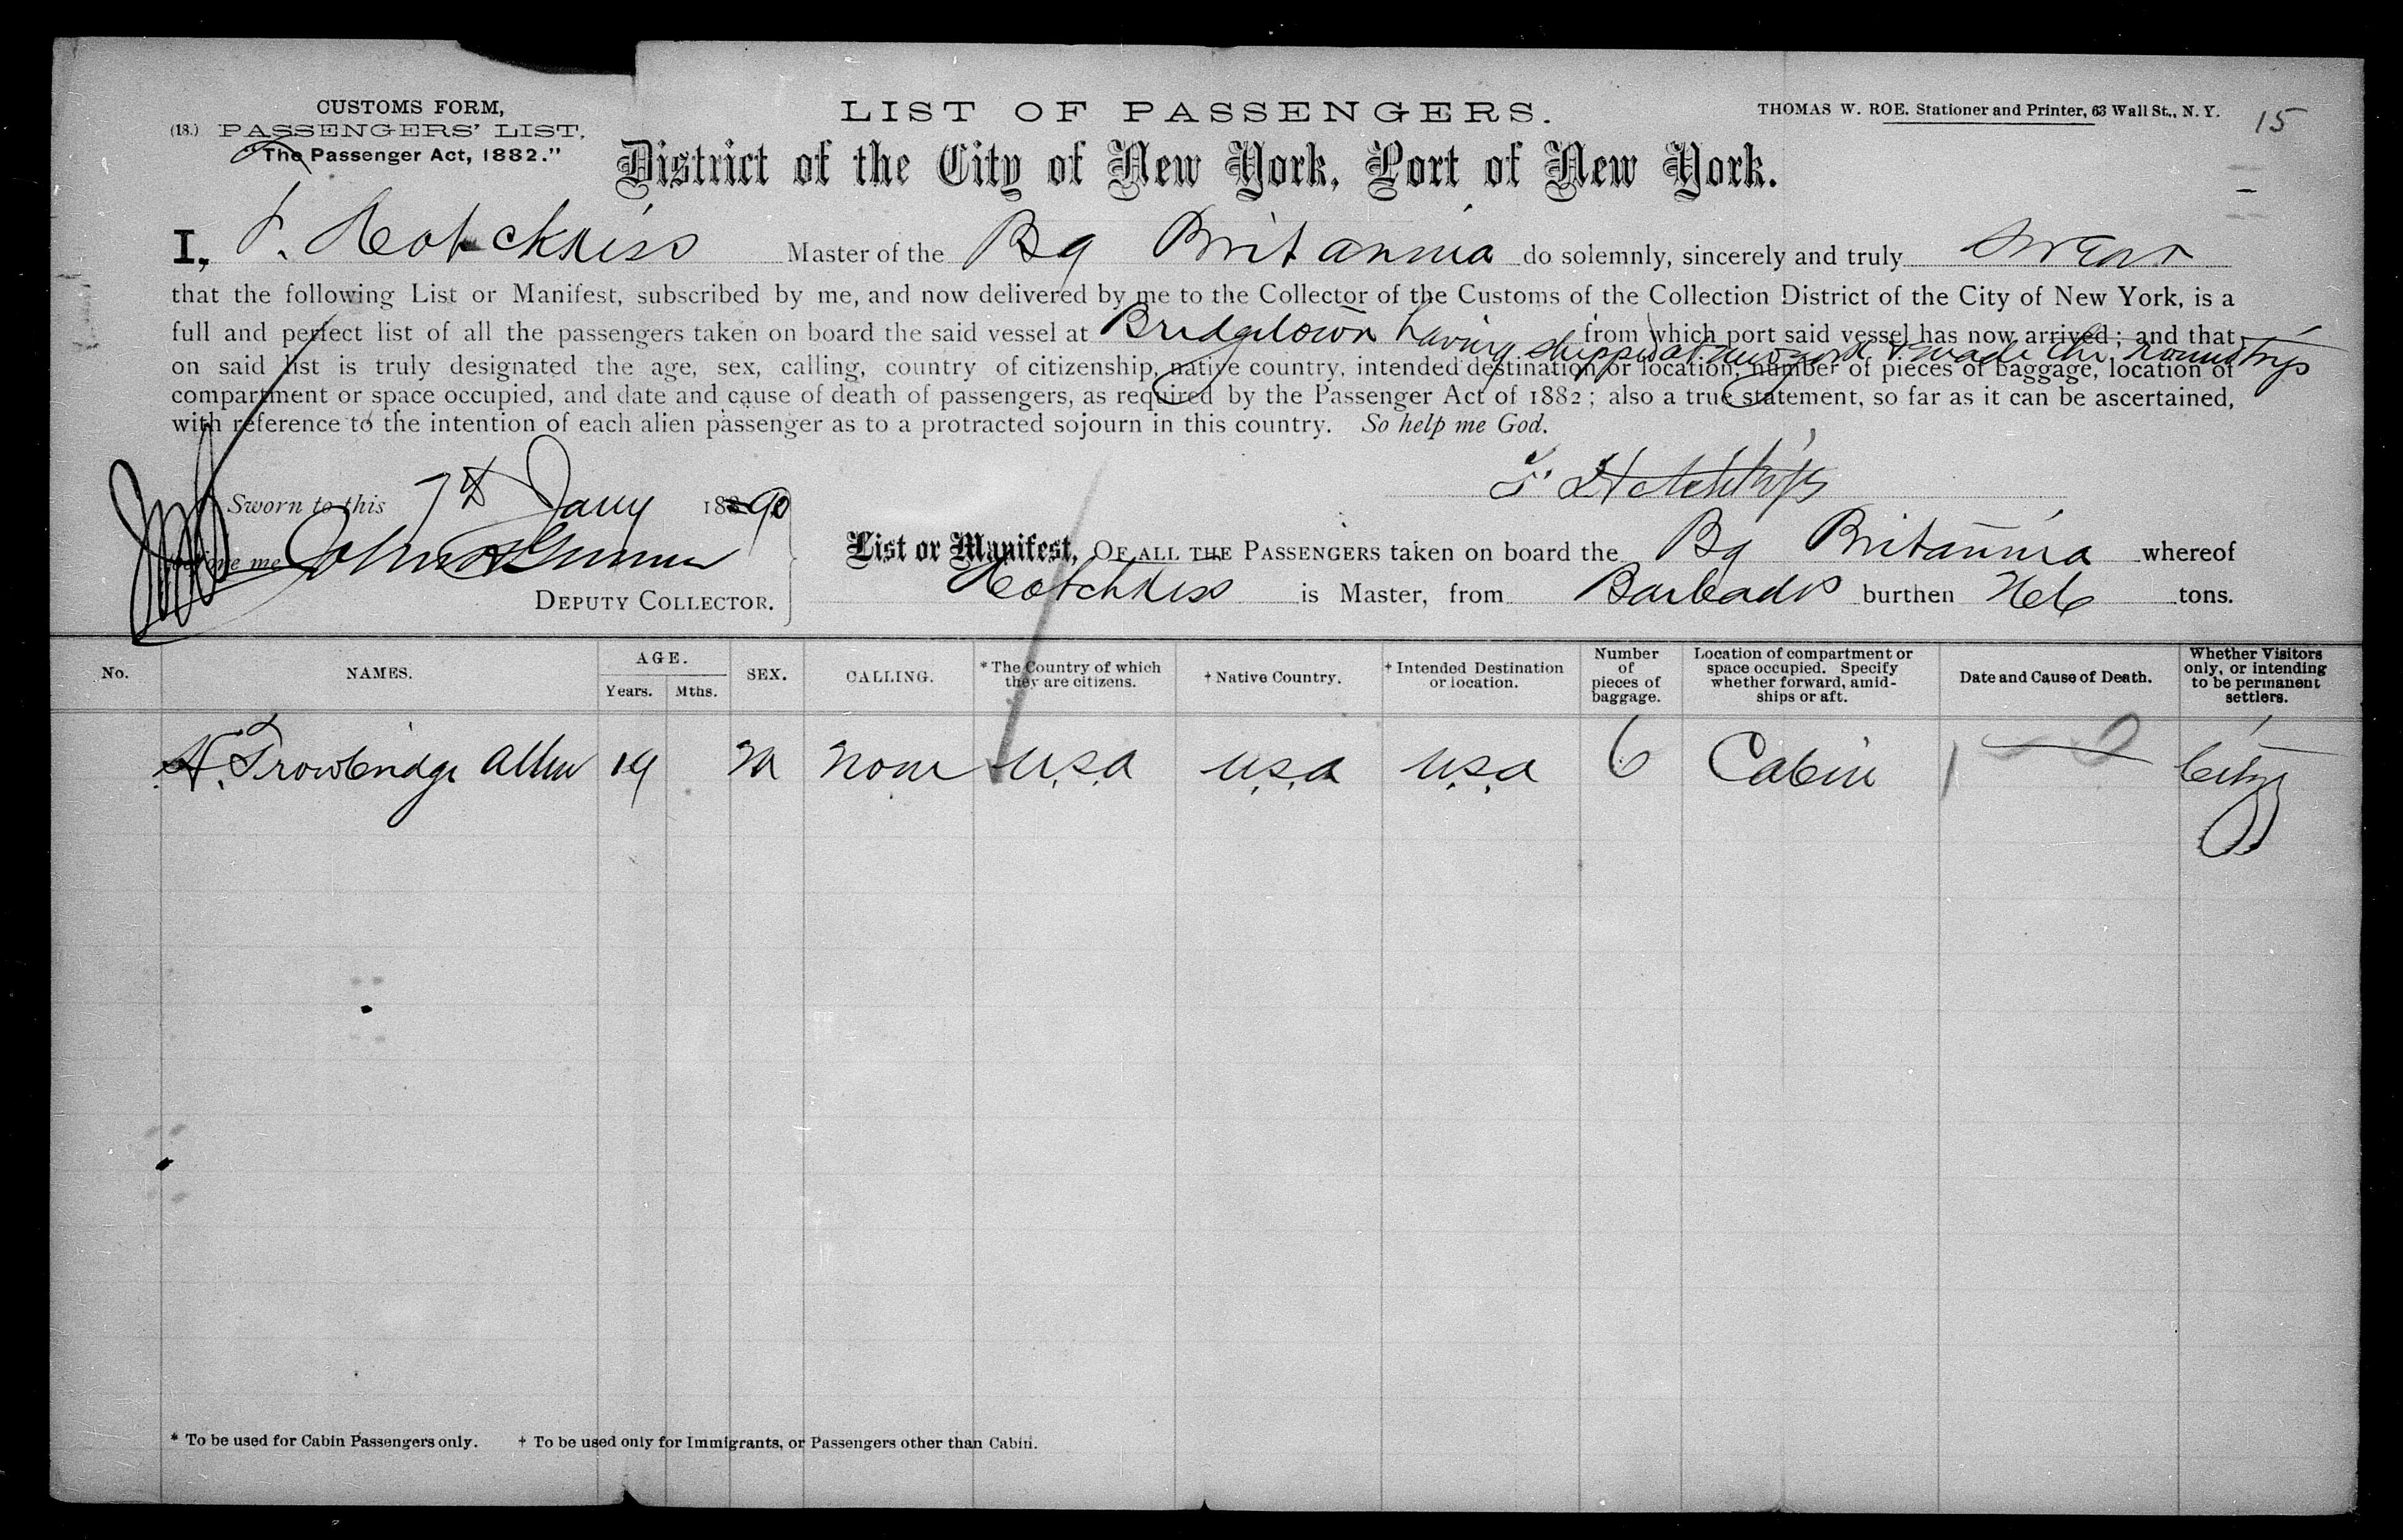 CUSTOMS FORM,
(18.) PASSENGERS' LIST,
"The Passenger Act, 1882."
LIST OF PASSENGERS.
THOMAS W. ROE. Stationer and Printer, 63 Wall St., N. Y.
15
District of the City of New York, Port of New York.
I, F. Hotchkiss Master of the Bg Britannia do solemnly, sincerely and truly swear
that the following List or Manifest, subscribed by me, and now delivered by me to the Collector of the Customs of the Collection District of the City of New York, is a
full and perfect list of all the passengers taken on board the said vessel at Bridgetown from which port said vessel has now arrived; and that
having shipped at new york & made the round trip
on said list is truly designated the age, sex, calling, country of citizenship, native country, intended destination or location, number of pieces of baggage, location of
compartment or space occupied, and date and cause of death of passengers, as required by the Passenger Act of 1882; also a true statement, so far as it can be ascertained,
with reference to the intention of each alien passenger as to a protracted sojourn in this country. So help me God.
F. Hotchkiss
Sworn to this 7th Jany 1890
before me John
DEPUTY COLLECTOR.
List or Manifest, OF ALL THE PASSENGERS taken on board the Bg Britannia whereof
Hotchkiss is Master, from Barbados burthen tons.
No. NAMES. AGE. Years. Mths. SEX. CALLING. * The Country of which they are citizens. † Native Country. † Intended Destination or location. Number of pieces of baggage. Location of compartment or space occupied. Specify whether forward, amidships or aft. Date and Cause of Death. Whether Visitors only, or intending to be permanent settlers.
H. Trowbridge Allen 19 M none U.S.A U.S.A U.S.A 6 Cabin
* To be used for Cabin Passengers only. † To be used only for Immigrants, or Passengers other than Cabin.